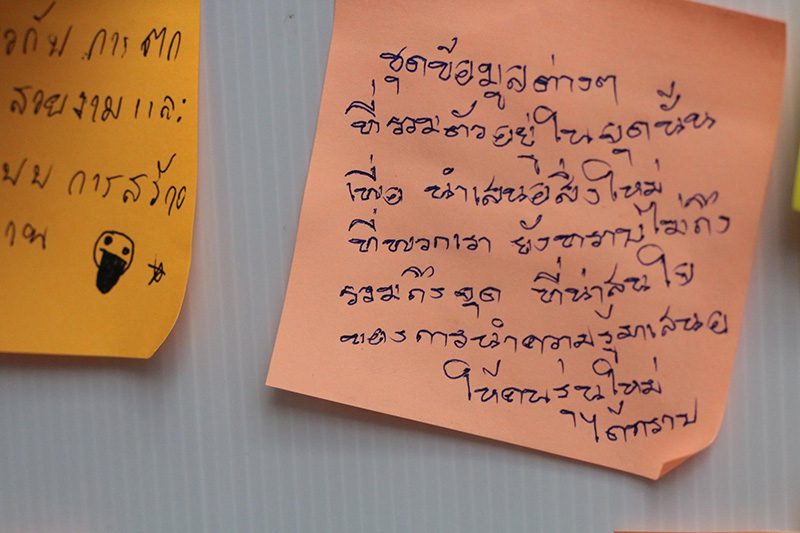 วกับ การตก
สวยงามและ
แบบ การสร้าง
ชุดข้อมูลต่างๆ
ที่รวมตัวอยู่ในยุคนั้น
เพื่อ นำเสนอสิ่งใหม่
ที่พวกเรา ยังทราบไม่ถึง
รวมถึงจุด ที่น่าสนใจ
ของการนำความรู้มาเสนอ
ให้คนรุ่นใหม่
ได้ทราบ